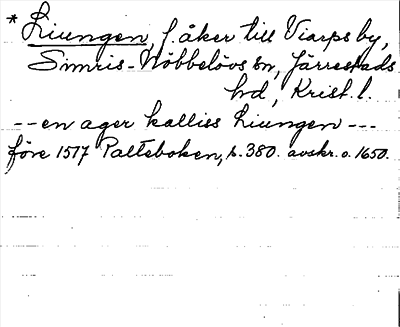 * Liungen, f. åker till Viarps by,
Simris-Nöbbelövs sn, Järrestads
hd, Krist. l.
-- en ager kalliss Liungen ---
före 1517 Palteboken, s. 380. avskr. o. 1650.